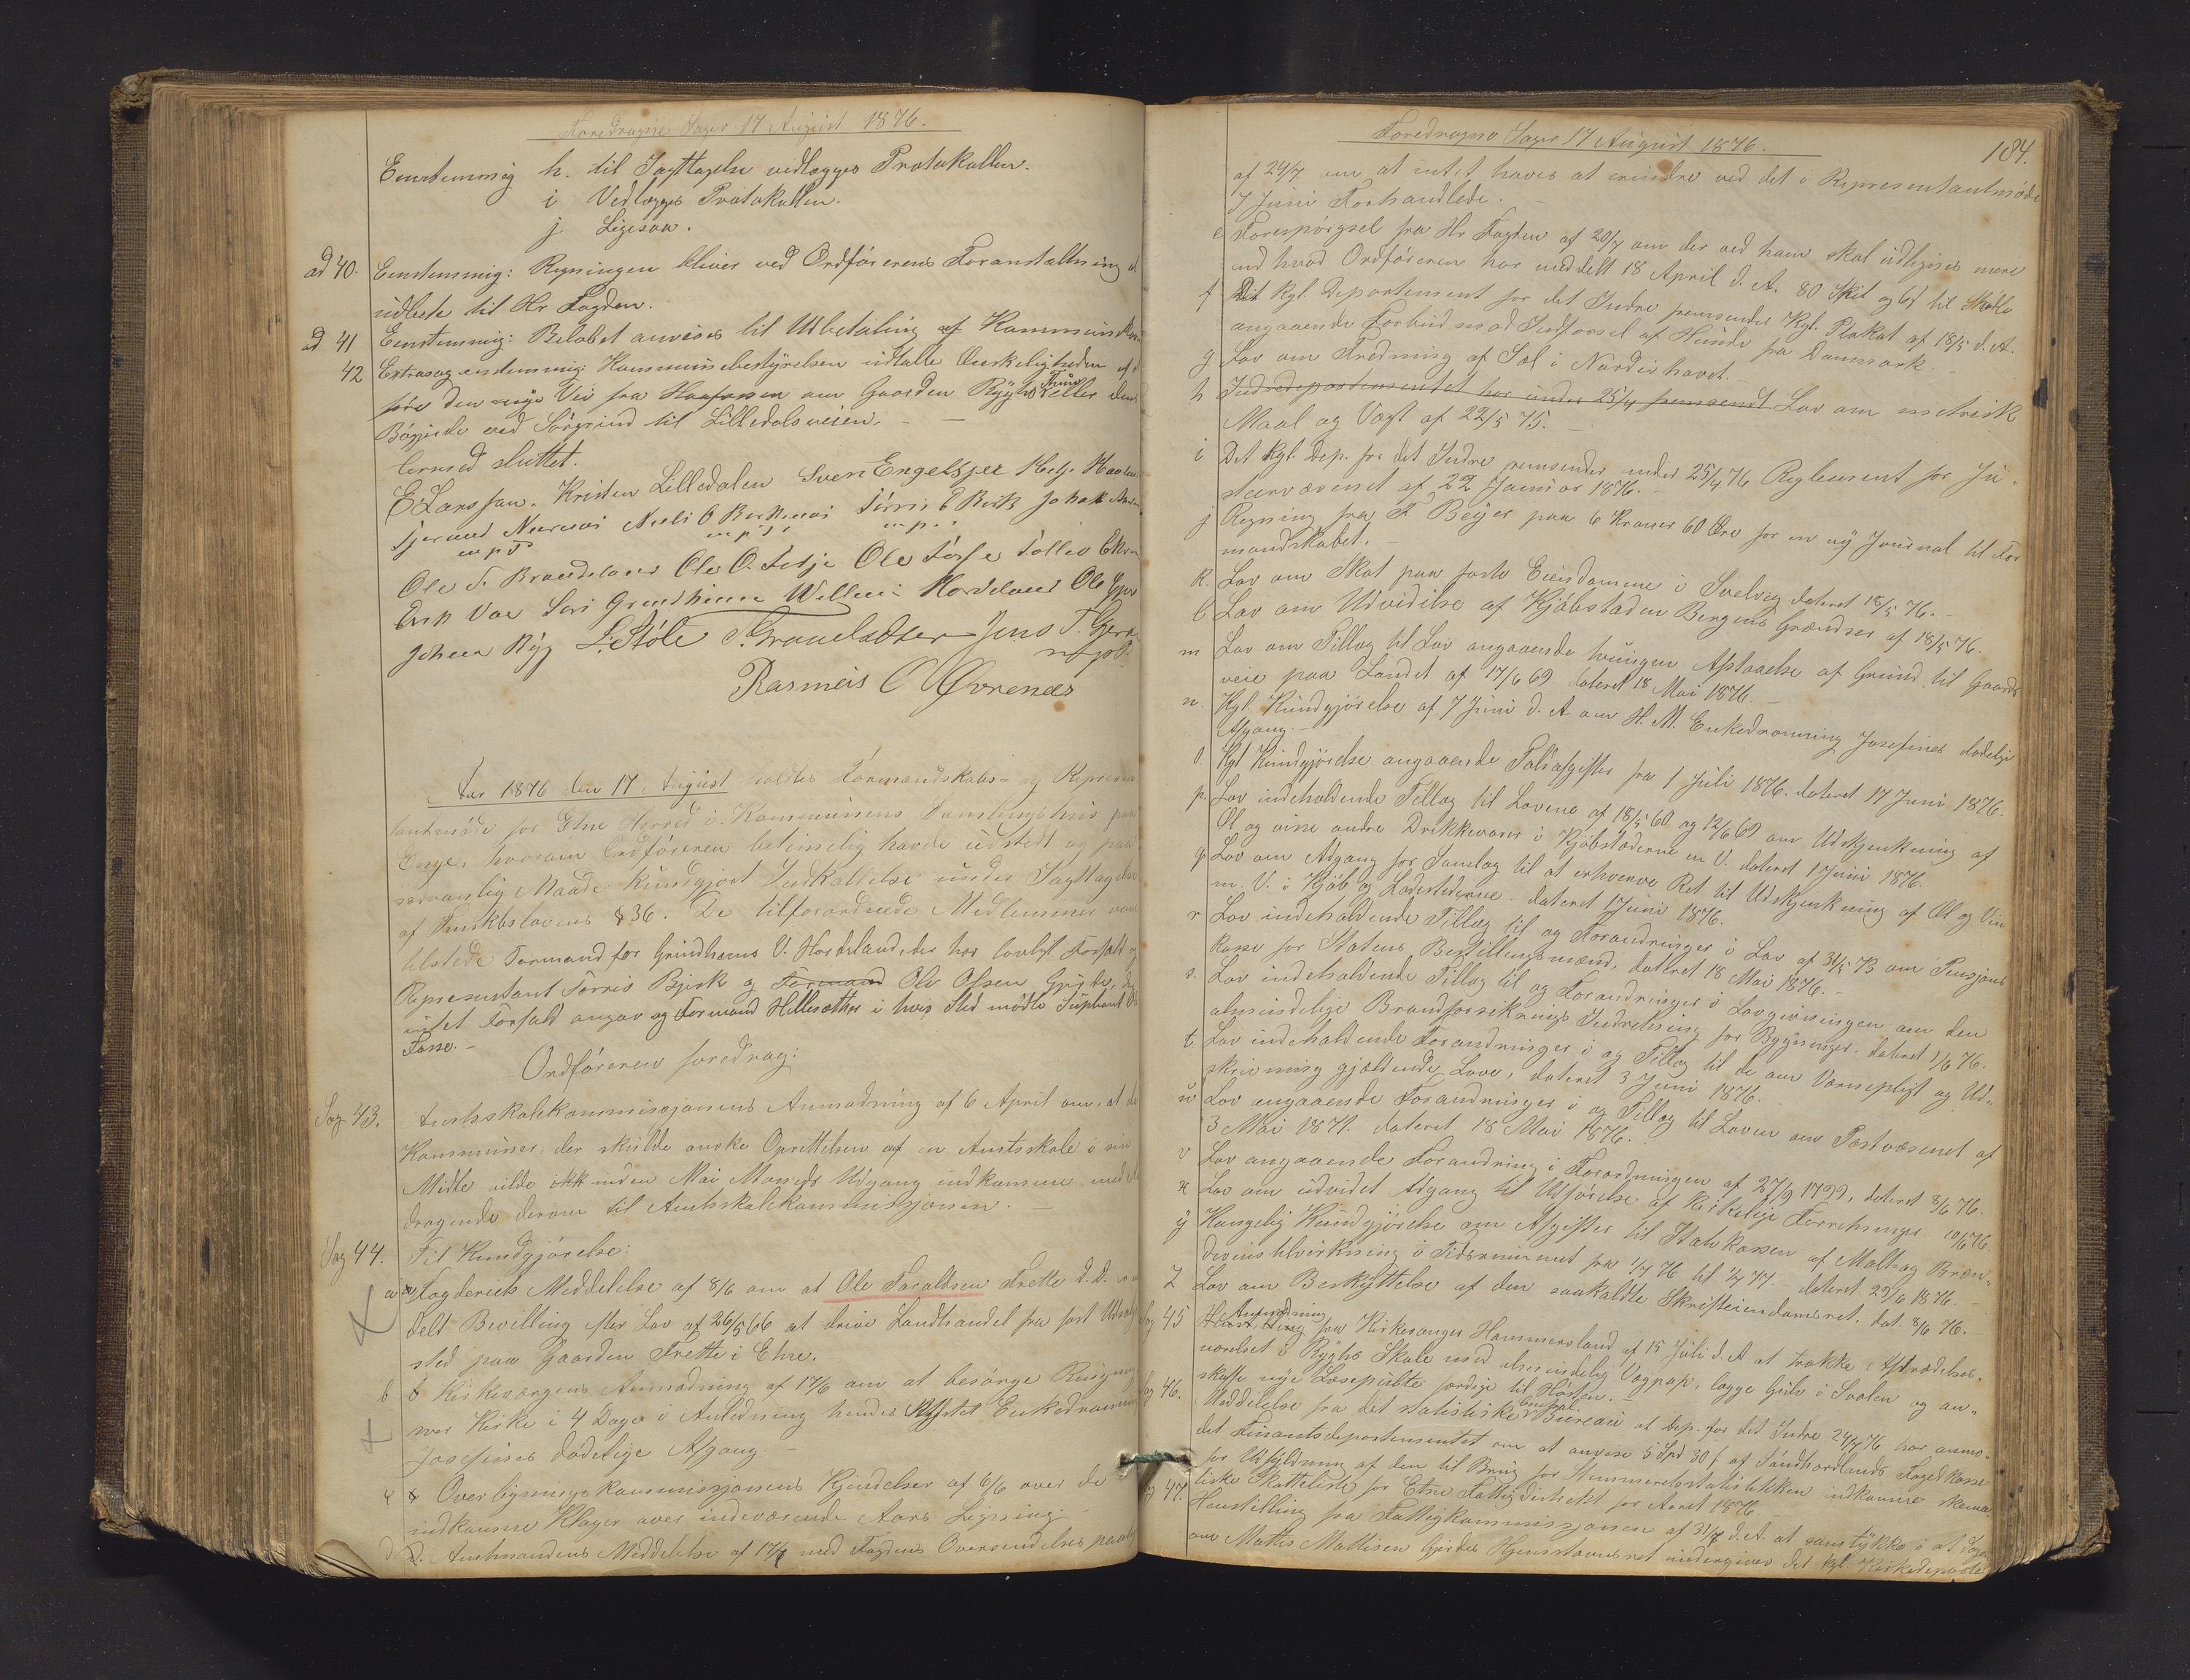 Foredragne Sager 17 August 1876.
Eenstemmig h. til Iagttagelse vedlægges Protokollen.
i Vedlægges Protokollen.
j Ligesaa.
ad 40. Eenstemmig: Regningen bliver ved Ordførerens Foranstaltning at
udbede til Hr Fogden.
ad 41 Eenstemmig: Beløbet anvises til Udbetaling af Kommunekassen
42 Extrasag eenstemmig: Kommunebestyrelsen udtalte Ønskeligheden af at
føre den nye Vei fra om Gaarden Rygh eller den
Bøgjerde ved Sørgrind til Lilledalsveien.
hermed sluttet.
E. Larsson. Kristen Lilledalen Sven Engelsgjer
Tjerand Ole B Torris E Birk Johan
m p P m p. m p.
Ole T. Brandeland Ole O. Silje Ole Tollev
Erik Vae Grindheim Willum Hordeland Ole
Johan Ryg L. Støle T. Frandsen Jens T.
Rasmus O Øvrenes
Aar 1876 den 17 August holdtes Formandskabs- og Represen
tantmøde for Etne Herred i Kommunens Samlingshus paa
Enge, hvorom Ordføreren betimelig havde udstedt og paa
sædvanlig Maade kundgjort Indkaldelse under Iagttagelse
af Formskbslovens § 36. De tilforordnede Medlemmer vare
tilstede Formand for Grindheims V. Hordeland, der har lovligt Forfald og
Representant Torris Bjerk og Formand Ole Olsen Gjerde,
intet Forfald angav og Formand Hellesæther i hvis Sted mødte Supleant
Fosse.
Ordføreren foredrog:
Sag 43. Amtsskolekommissjonens Anmodning af 6 April om, at de
Kommuner, der skulde ønske Oprettelsen af en Amtsskole i sin
Midte vilde inden Mai Maaneds Udgang indkomme med
dragende derom til Amtsskolekommissjonen.
Sag 44. Til Kundgjørelse:
a Fogderiets Meddelelse af 8/6 om at Ole Taraldsen Frette d. D. er
delt Bevilling efter Lov af 26/5 66 at drive Landhandel fra fast Udsalgs
sted paa Gaarden Frette i Etne.
b Kirkeværgens Anmodning af 17/6 om at besørge Ringning
vor Kirke i 4 Dage i Anledning hendes Majstet Enkedronning
Josefines dødelige Afgang.
c Overligningskommissjonens Kjendelser af 6/6 over de
indkomne Klager over indeværende Aars Ligning
d Amtmandens Meddelelse af 17/7 med Fogdens Oversendelses paateg
Foredragne Sager 17 August 1876.
184.
af 24/7 om at intet haves at erindre ved det i Representantmøde
7 Juni Forhandlede.
e Forespørgsel fra Hr Fogden af 20/7 om der ved ham skal udlignes mere
end hvad Ordføreren har meddelt 18 April d. A. 80 Skil og 6 ß til
f Det Kgl. Departement for det Indre fremsender Kgl. Plakat af 18/5 d. A.
angaaende Forbud mod Indførsel af Hunde fra Danmark.
g Lov om Fredning af Sæl i Nordishavet.
h Indredepartementet har under 25/4 fremsendt Lov om metrisk
Maal og Vægt af 22/5 75.
i Det Kgl. Dep. for det Indre fremsender under 25/4 76 Reglement for Ju-
steervæsenet af 22 Januar 1876.
j Regning fra F. Beyer paa 6 Kroner 60 Øre for en ny Journal til For
mandskabet.
k. Lov om Skat paa faste Eiendomme i Svelvig dateret 18/5 76.
l Lov om Udvidelse af Kjøbstaden Bergens Grændser af 18/5 76.
m Lov om Tillæg til Lov angaaende tvungen Afstaaelse af Grund til Gaards
veie paa Landet af 17/6 69 dateret 18 Mai 1876.
n. Kgl. Kundgjørelse af 7 Juni d. A om H. M. Enkedronning Josefines dødelige
Afgang.
o Kgl Kundgjørelse angaaende Toldafgifter fra 1 Juli 1876. dateret 17 Juni 1876.
p. Lov indeholdende Tillæg til Lovene af 18/5 60 og 12/6 69 om Udskjenkning af
Øl og visse andre Drikkevarer i Kjøbstæderne m V. dateret 1 Juni 1876.
q Lov om Adgang for Samlag til at erhverve Ret til Udskjenkning af Øl og Vin
m. V. i Kjøb og Ladestederne dateret 1 Juni 1876.
r Lov indeholdende Tillæg til og Forandringer i Lov af 31/5 73 om Pensjons
kasse for Statens Bestillingsmænd, dateret 18 Mai 1876.
s. Lov indeholdende Tillæg til og Forandringer i Lovgivningen om den
almindelige Brandforsikrings Indretning for Bygninger. dateret 1/6 76.
t Lov indeholdende Forandringer i og Tillæg til de om Værnepligt og Ud-
skrivning gjældende Love, dateret 3 Juni 1876.
u Lov angaaende Forandringer i og Tillæg til Loven om Postvæsenet af
3 Mai 1871. dateret 18 Mai 1876.
v Lov angaaende Forandring i Forordningen af 27/9 1799, dateret 8/6 76.
x Lov om udvidet Adgang til Udførelse af kirkelige Forretninger 10/6 76.
y Kongelig Kundgjørelse om Afgifter til Statskassen af Malt- og Bræn-
devinstilvirkning i Tidsrummet fra 1/7 76 til 1/7 77. dateret 29/6 1876
z Lov om Beskyttelse af den saakaldte Skrifteiendomsret. dat. 8/6 76.
Sag 45 Anmodning fra Kirkesanger Hammersland af 15 Juli d. A at trække Aftrædelses-
værelset i Ryghs Skole med almindelig Vægpap, lægge Gulv i Svalen og an-
skaffe nye Læsepulte færdige til Høsten.
Sag 46. Meddelelse fra det statistiske Central Bureau at Dep. for det Indre 24/7 76 har anmo-
det Finantsdepartementet om at anvise 5 Spd 30 ß af Søndhordlands Fogedkasse
for Udfyldning af den til Brug for Stemmeretsstatistikken indkomne skema
tiske Skatteliste for Etne Fattigdistrikt for Aaret 1876
Sag 47. Henstilling fra Fattigkommissjonen af 31/7 d. A. at samtykke i at Sagen
om Mattis Mattisen Gjerdes Hjemstavnsret undergives det kgl. Kirkedeparte